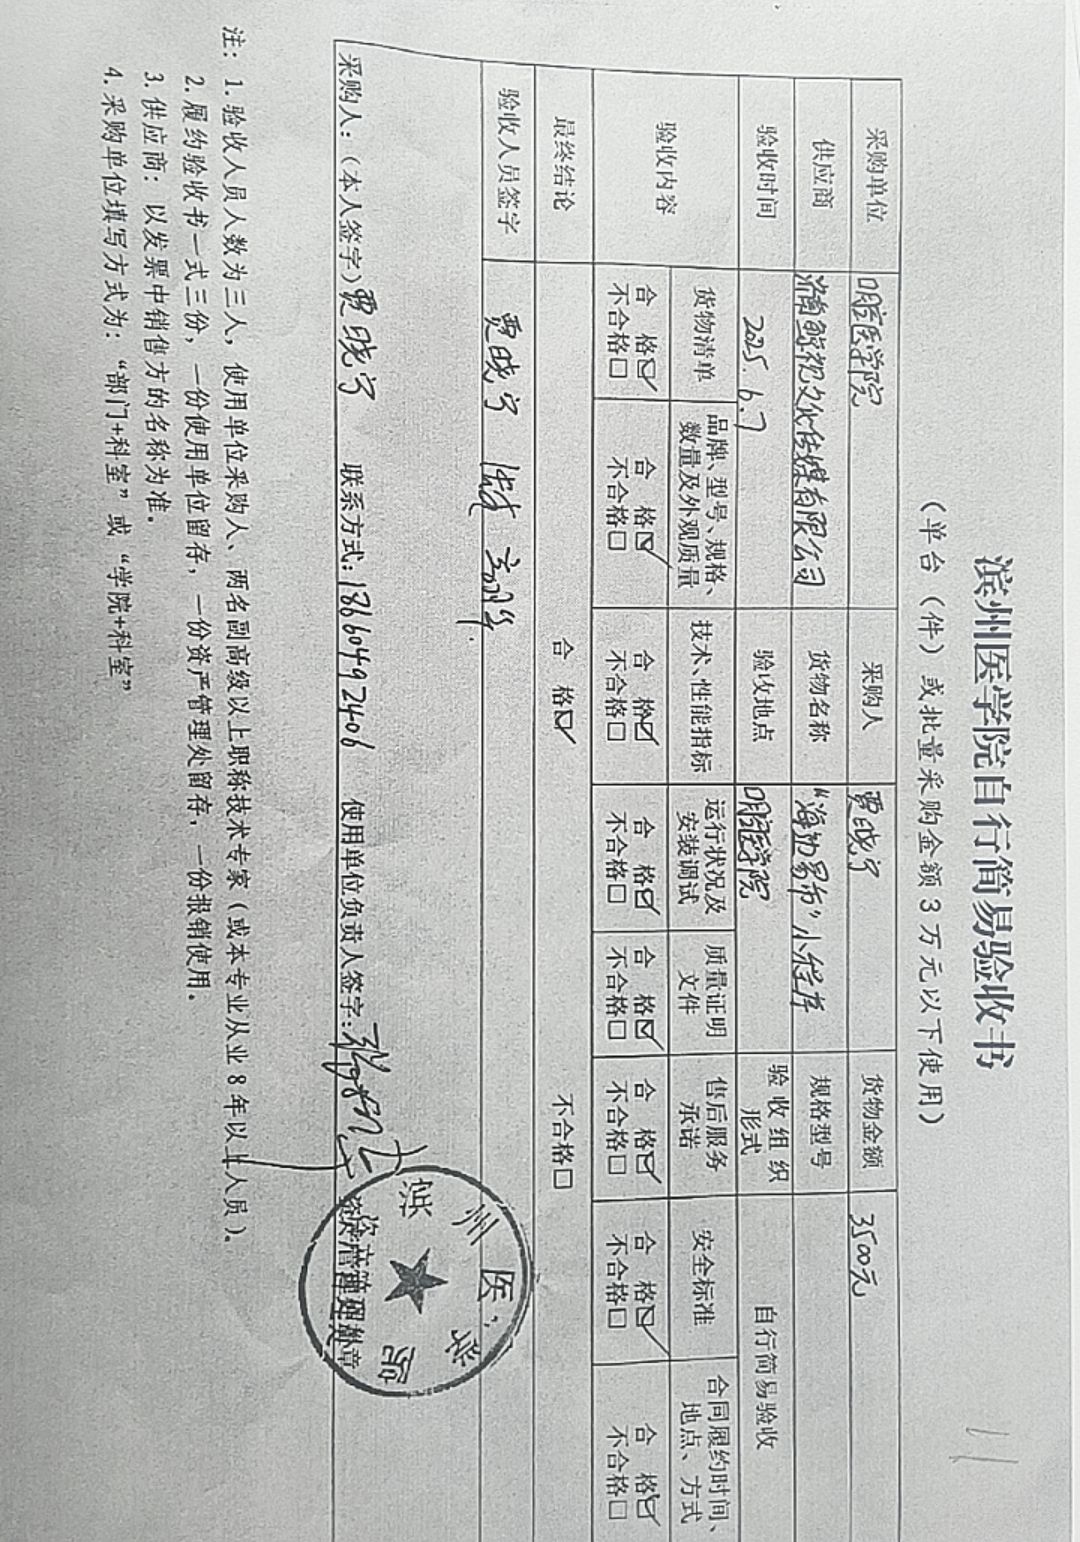 滨州医学院自行简易验收书
（单台（件）或批量采购金额3万元以下使用）
采购单位 口腔医学院 采购人 贾晓宁 货物金额 3500元
供应商 济南鲸视文化传媒有限公司 货物名称 小程序 规格型号
验收时间 2025.6.7 验收地点 口腔医学院 验收组织形式 自行简易验收
验收内容
货物清单 品牌、型号、规格、数量及外观质量 技术、性能指标 运行状况及安装调试 质量证明文件 售后服务承诺 安全标准 合同履约时间、地点、方式
合 格☑ 合 格☑ 合 格☑ 合 格☑ 合 格☑ 合 格☑ 合 格☑ 合 格☑
不合格☐ 不合格☐ 不合格☐ 不合格☐ 不合格☐ 不合格☐ 不合格☐ 不合格☐
最终结论 合 格☑ 不合格☐
验收人员签字 贾晓宁
采购人：（本人签字）贾晓宁 联系方式：18660492406 使用单位负责人签字：
滨州医学院
注：1.验收人员人数为三人，使用单位采购人、两名副高级以上职称技术专家（或本专业从业8年以上人员）。
2.履约验收书一式三份，一份使用单位留存，一份资产管理处留存，一份报销使用。
3.供应商：以发票中销售方的名称为准。
4.采购单位填写方式为：“部门+科室”或“学院+科室”
11